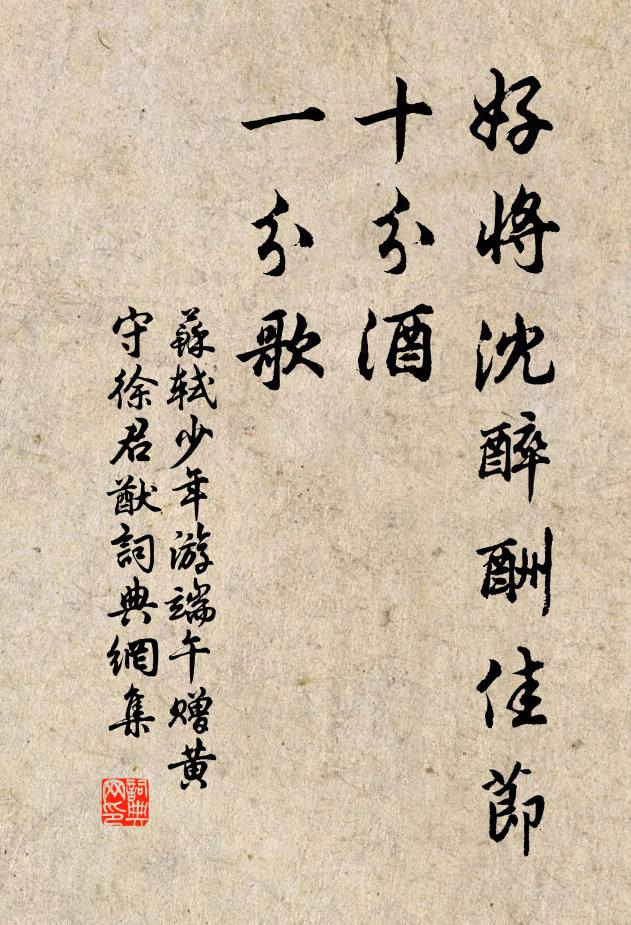 好將沈醉酬佳節
十分酒
一分歌
蘇軾少年游端午赠黄
守徐君猷詞典網集
詞典网印